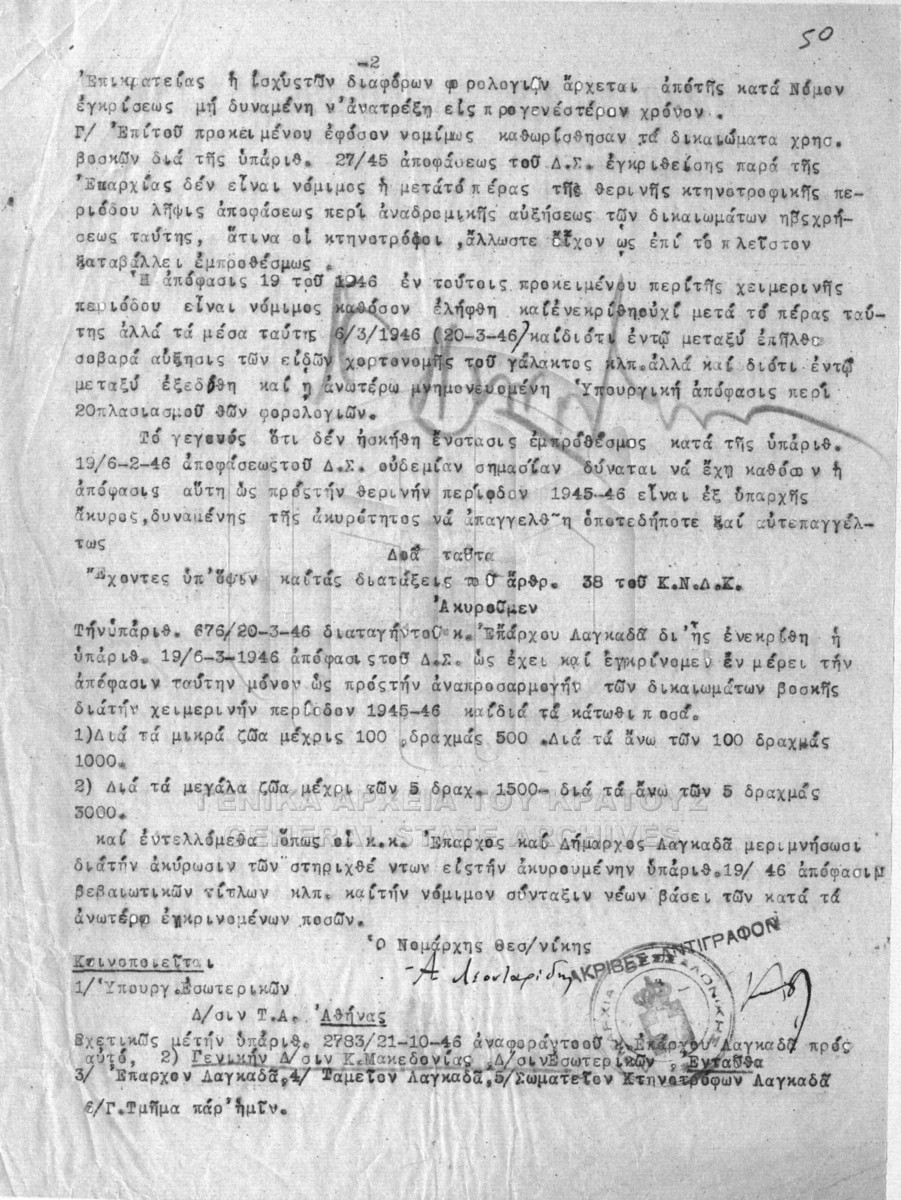 50
-2
Ἐπικρατείας ἡ ἰσχύςτῶν διαφόρων φορολογιῶν ἄρχεται ἀπότῆς κατά Νόμον
ἐγκρίσεως μή δυναμένη ν'ἀνατρέξη εἰς προγενέστερον χρόνον .
Γ/ Ἐπίτοῦ προκειμένου ἐφόσον νομίμως καθωρίσθησαν τά δικαιώματα χρησ.
βοσκῶν διά τῆς ὑπάριθ. 27/45 ἀποφάσεως τοῦ Δ.Σ. ἐγκριθείσης παρά τῆς
Ἐπαρχίας δέν εἶναι νόμιμος ἡ μετάτό πέρας τῆς θερινῆς κτηνοτροφικῆς πε-
ριόδου λῆψις ἀποφάσεως περί ἀναδρομικῆς αὐξήσεως τῶν δικαιωμάτων τῆςχρή-
σεως ταύτης, ἅτινα οἱ κτηνοτρόφοι ,ἄλλωστε εἶχον ὡς ἐπί τό πλεῖστον
καταβάλλει ἐμπροθέσμως .
Ἡ ἀπόφασις 19 τοῦ 1946 ἐν τούτοις προκειμένου περίτῆς χειμερινῆς
περιόδου εἶναι νόμιμος καθόσον ἐλήφθη καίἐνεκρίθηοὐχί μετά τό πέρας ταύ-
της ἀλλά τά μέσα ταύτης 6/3/1946 (20-3-46)καίδιότι ἐντῷ μεταξύ ἐπῆλθε
σοβαρά αὔξησις τῶν εἰδῶν χορτονομῆς τοῦ γάλακτος κλπ.ἀλλά καί διότι ἐντῷ
μεταξύ ἐξεδόθη καί ἡ ἀνωτέρω μνημονευομένη Ὑπουργική ἀπόφασις περί
20πλασιασμοῦ θῶν φορολογιῶν.
Τό γεγονός ὅτι δέν ἠσκήθη ἔνστασις ἐμπρόθέσμος κατά τῆς ὑπάριθ.
19/6-2-46 ἀποφάσεωςτοῦ Δ.Σ. οὐδεμίαν σημασίαν δύναται νά ἔχη καθόσων ἡ
ἀπόφασις αὕτη ὡς πρόςτήν θερινήν περίοδον 1945-46 εἶναι ἐξ ὑπαρχῆς
ἄκυρος,δυναμένης τῆς ἀκυρότητος νά ἀπαγγελθῆ ὁποτεδήποτε καί αὐτεπαγγέλ-
τως
Διά ταῦτα
Ἔχοντες ὑπ'ὄψιν καίτάς διατάξεις τοῦ ἄρθρ. 38 τοῦ Κ.Ν.Δ.Κ.
Ἀκυροῦμεν
Τήνὑπάριθ. 676/20-3-46 διαταγήντοῦ κ. Ἐπάρχου Λαγκαδᾶ δι'ἧς ἐνεκρίθη ἡ
ὑπάριθ. 19/6-3-1946 ἀπόφασιςτοῦ Δ.Σ. ὡς ἔχει καί ἐγκρίνομεν ἐν μέρει τήν
ἀπόφασιν ταύτην μόνον ὡς πρόςτήν ἀναπροσαρμογήν τῶν δικαιωμάτων βοσκῆς
διάτήν χειμερινήν περίοδον 1945-46 καίδιά τά κάτωθι ποσά.
1)Διά τά μικρά ζῶα μέχρις 100 ,δραχμάς 500 .Διά τά ἄνω τῶν 100 δραχμάς
1000.
2) Διά τά μεγάλα ζῶα μέχρι τῶν 5 δραχ. 1500- διά τά ἄνω τῶν 5 δραχμάς
3000.
ΓΕΝΙΚΑ ΑΡΧΕΙΑ ΤΟΥ ΚΡΑΤΟΥΣ
GENERAL STATE ARCHIVES
καί ἐντελλόμεθα ὅπως οἱ κ.κ. Ἔπαρχος καί Δήμαρχος Λαγκαδᾶ μεριμνήσωσι
διάτήν ἀκύρωσιν τῶν στηριχθέ ντων εἰςτήν ἀκυρουμένην ὑπάριθ.19/ 46 ἀπόφασιν
βεβαιωτικῶν τίτλων κλπ. καίτήν νόμιμον σύνταξιν νέων βάσει τῶν κατά τά
ἀνωτέρω ἐγκρινομένων ποσῶν.
Ὁ Νομάρχης Θεσ/νίκης
ΑΚΡΙΒΕΣ ΑΝΤΙΓΡΑΦΟΝ
Α Λεονταρίδης
Κοινοποιεῖται
1/Ὑπουργ.Ἐσωτερικῶν
Δ/σιν Τ.Α. Ἀθήνας
Σχετικῶς μέτήν ὑπάριθ. 2783/21-10-46 ἀναφοράντοῦ κ.Ἐπάρχου Λαγκαδᾶ πρός
αὐτό, 2) Γενικήν Δ/σιν Κ.Μακεδονίας Δ/σινἘσωτερικῶν Ἐνταῦθα
3/ Ἔπαρχον Λαγκαδᾶ,4/ Ταμεῖον Λαγκαδᾶ,5/Σωματεῖον Κτηνοτρόφων Λαγκαδᾶ
6/Γ.Τμῆμα πάρ'ἡμῖν.